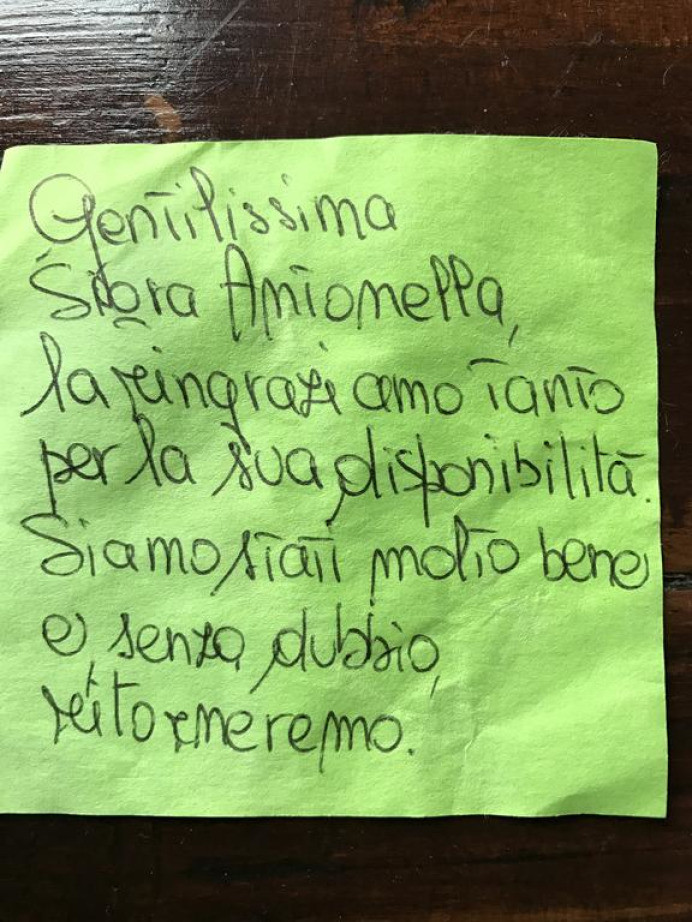 Gentilissima
Sig.ra Antonella,
la ringraziamo tanto
per la sua disponibilità.
Siamo stati molto bene
e, senza dubbio,
ritorneremo.